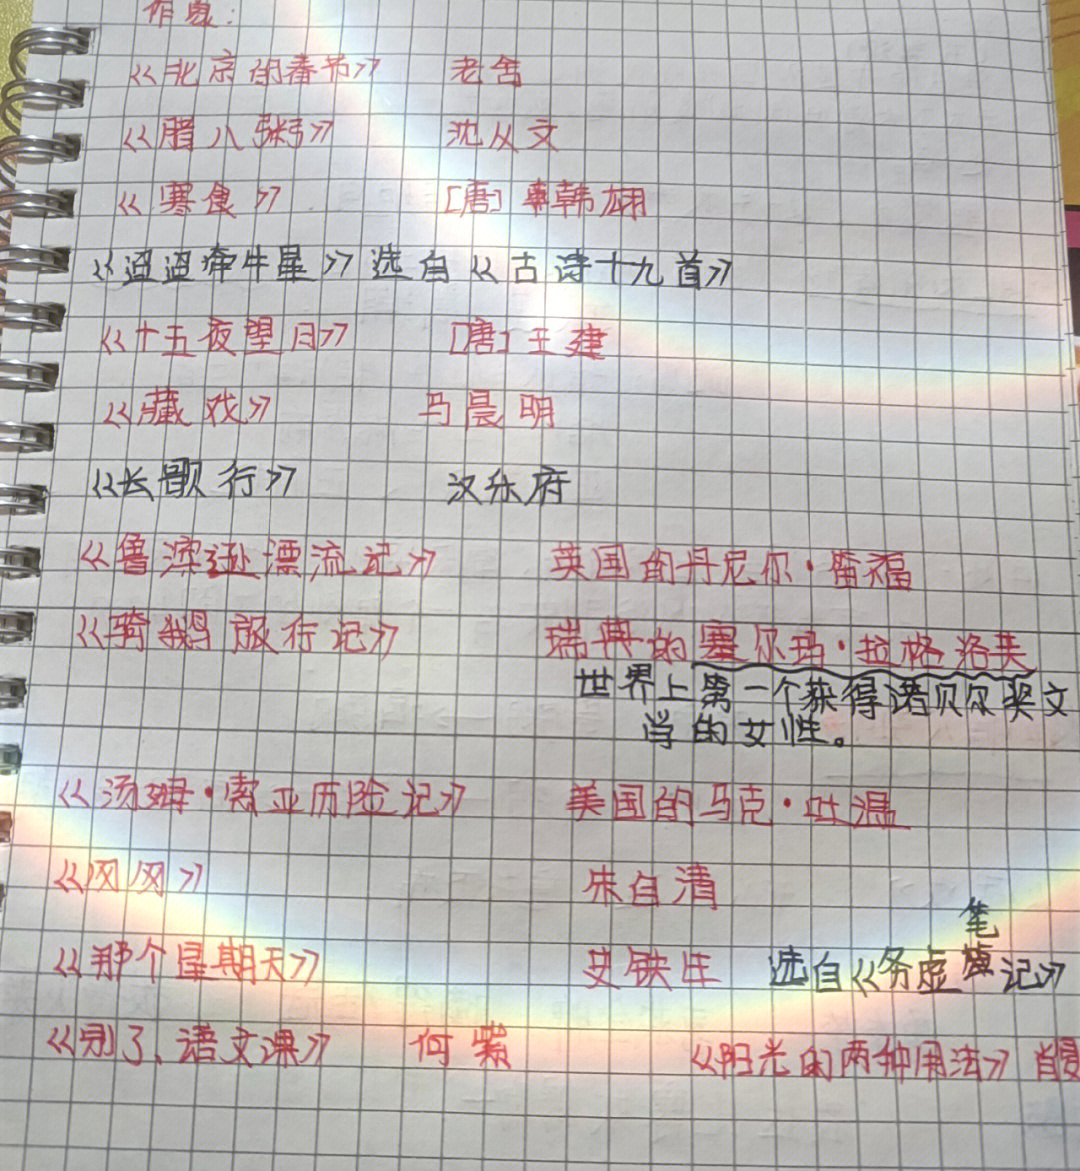 作家:
《北京的春节》 老舍
《腊八粥》 沈从文
《寒食》 [唐] 韩翃
《迢迢牵牛星》 选自《古诗十九首》
《十五夜望月》 [唐] 王建
《藏戏》 马晨明
《长歌行》 汉乐府
《鲁滨逊漂流记》 英国的丹尼尔·笛福
《骑鹅旅行记》 瑞典的塞尔玛·拉格洛芙
世界上第一个获得诺贝尔奖文
学的女性。
《汤姆·索亚历险记》 美国的马克·吐温
《匆匆》 朱自清
《那个星期天》 史铁生 选自《务虚笔记》
《别了、语文课》 何紫 《阳光的两种用法》 肖